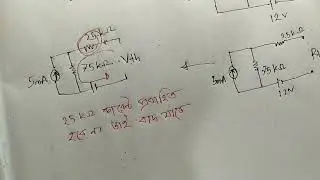 12V
25kΩ
5mA
75kΩ
Vth
25kΩ
5mA
75kΩ
12V
25 kΩ কারেন্ট প্রবাহিত
হবে না তাই বাদ যাবে